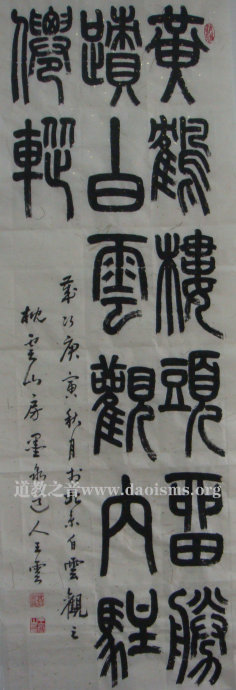 黄鶴樓頭畱勝
蹟白雲觀内駐
僊
歲次庚寅秋月於北京白雲觀之
枕雲山房墨道人王雲
道教之音 www.daoisms.org